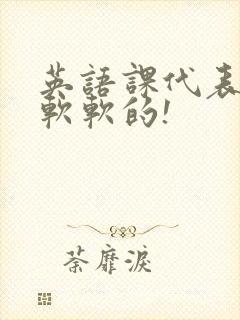 英語課代表
軟軟的!
荼靡淚